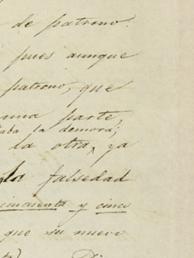 de patrono.
pues aunque
patrono, que
una parte,
aba la demora;
la otra, ya
falsedad
cincuenta y cinco
que su nuevo